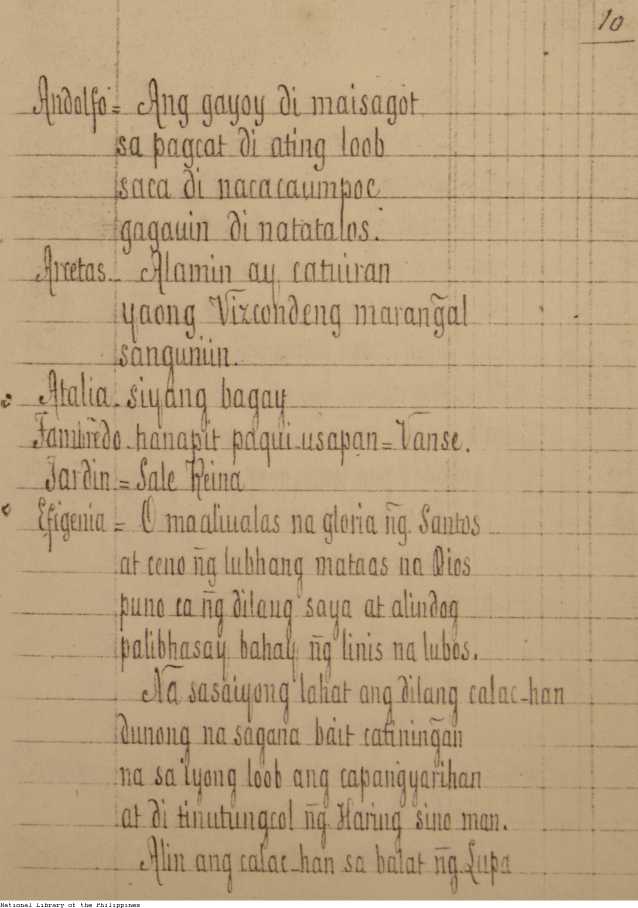 10
Andolfo = Ang gayoy di maisagot
sa pagcat di ating loob
saca di nacacaumpoc
gagauin di natatalos.
Arcetas - Alamin ay, catuiran
yaong Vizcondeng marang̃al
sanguniin.
Atalia - siyang bagay
hanapit paqui usapan = Vanse.
Jardin = Sale Reina
Efigenia = O maaliualas na gloria ñg Santos
at ceno ñg lubhang mataas na Dios
puno ca ñg dilang saya at alindog
palibhasay bahay ñg linis na lubos.
Na sasaiyong lahat ang dilang calac-han
dunong na sagana bait catining̃an
na sa iyong loob ang capang̃yarihan
at di tinutungcol ñg Haring sino man.
Alin ang calac-han sa balat ñg Lupa
National Library of the Philippines